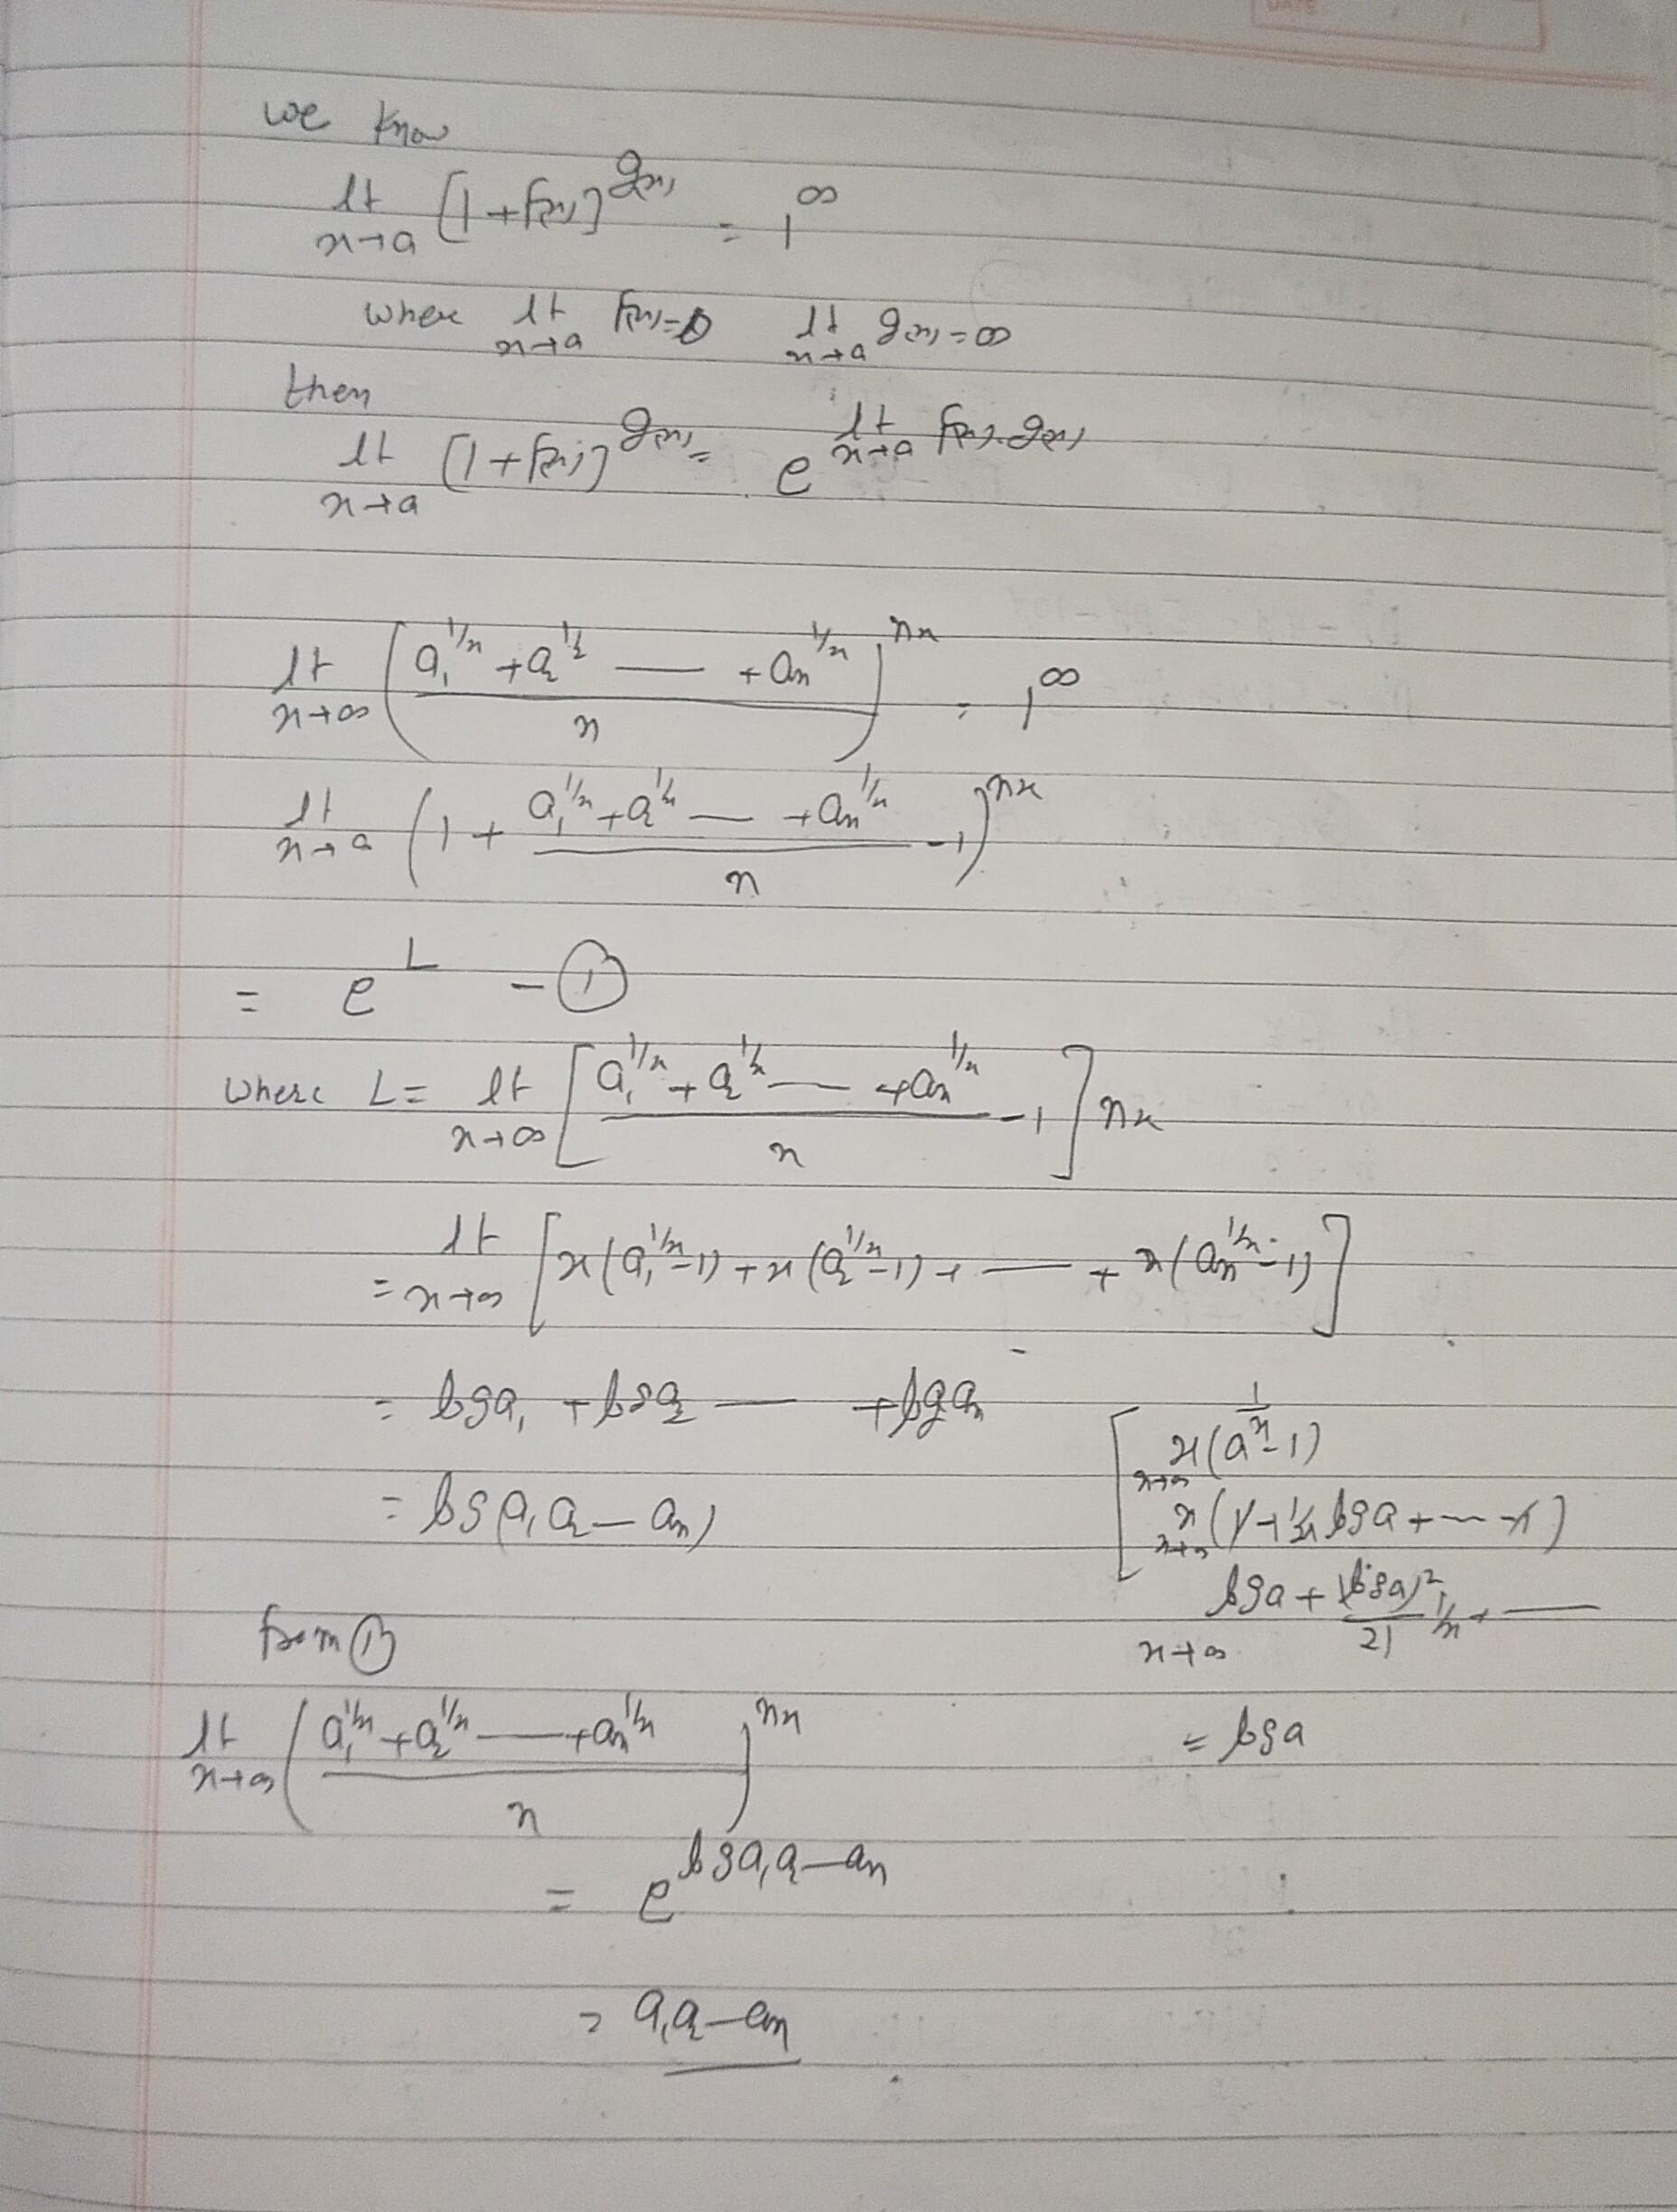 DATE
we know
lt x→a [1+f(x)]^g(x) = 1^∞
where lt x→a f(x)=0 lt x→a g(x)=∞
then
lt x→a [1+f(x)]^g(x) = e^(lt x→a f(x).g(x))
lt x→∞ ((a₁^1/x + a₂^1/x — + aₙ^1/x)/n)^nx = 1^∞
lt x→a (1 + (a₁^1/x + a₂^1/x — + aₙ^1/x)/n - 1)^nx
= e^L - ①
where L = lt x→∞ [(a₁^1/x + a₂^1/x — + aₙ^1/x)/n - 1] nx
= lt x→∞ [x(a₁^1/x - 1) + x(a₂^1/x - 1) + — + x(aₙ^1/x - 1)]
= log a₁ + log a₂ — + log aₙ
= log(a₁ a₂ — aₙ)
[ x→∞ x(a^1/x - 1)
x→∞ x(1 + 1/x log a + --- - 1)
x→∞ log a + (log a)²/2! 1/x + —
= log a
from ①
lt x→∞ ((a₁^1/x + a₂^1/x — + aₙ^1/x)/n)^nx
= e^(log a₁ a₂ — aₙ)
= a₁ a₂ — aₙ